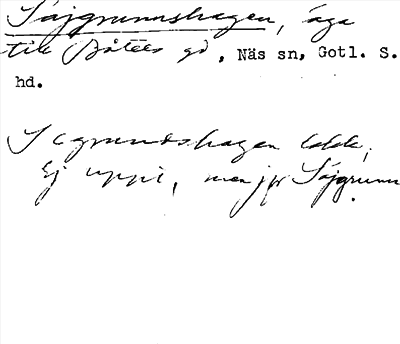 Säjgrunnshagen, äga
till Båtels gd, Näs sn, Gotl. S.
hd.
S grundshagen
Ej uppt, men jfr Säjgrunn